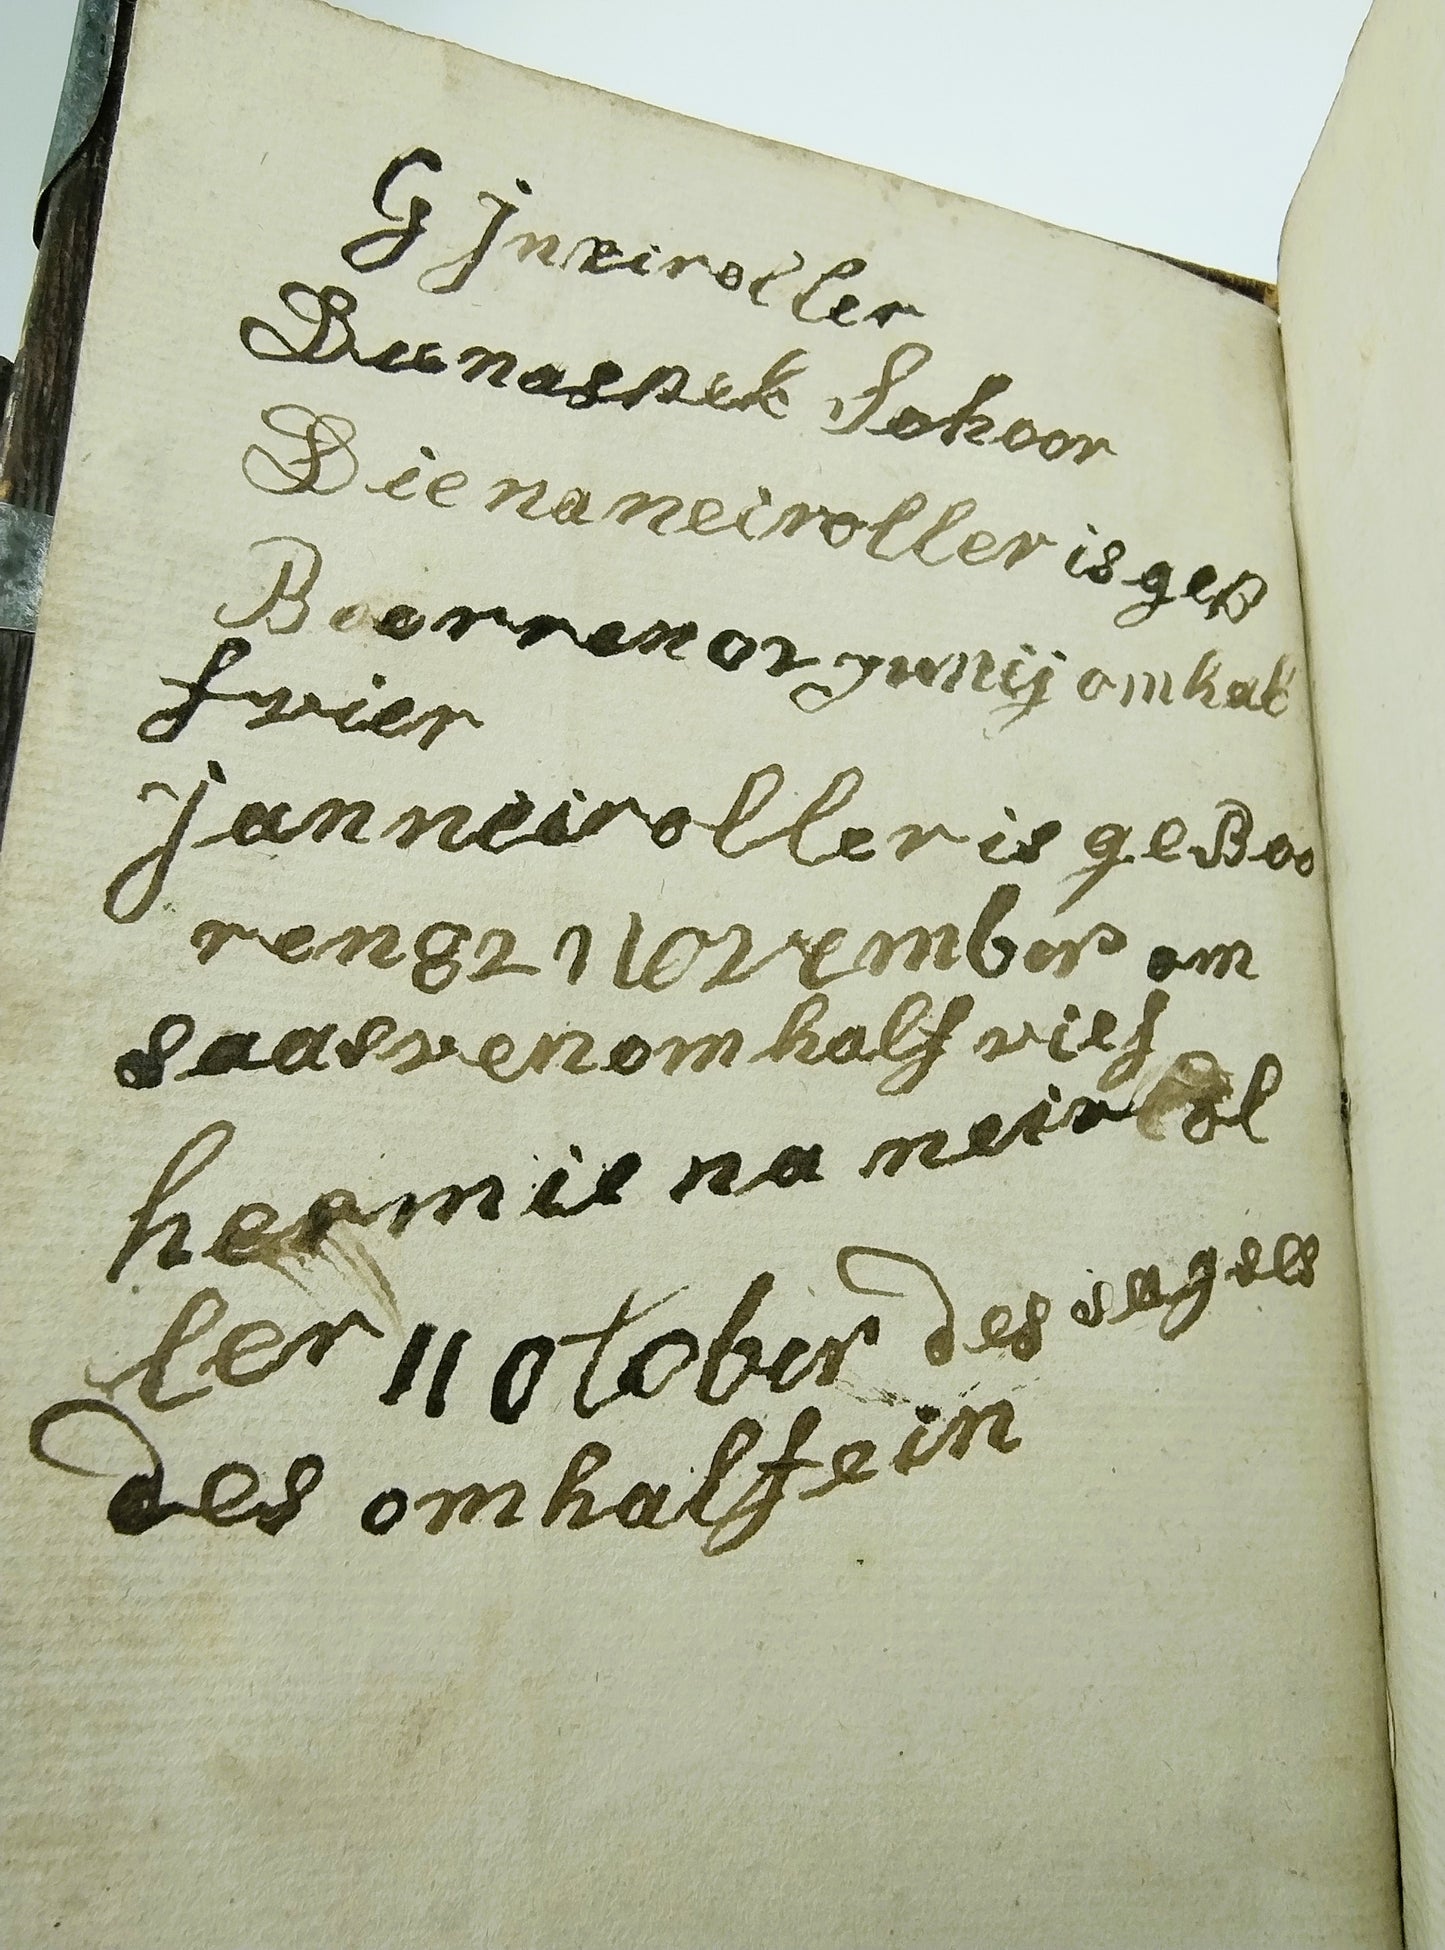 G Jneiroller
Bunaspek Schoor
Dienaneiroller is geb
Boerren 02 yunij omhal
f vier
Janneiroller is geBoo
ren 82 November om
saasvenomhalf vief
hermiena neirol
ler 11 Otober des sagels
des omhalfein